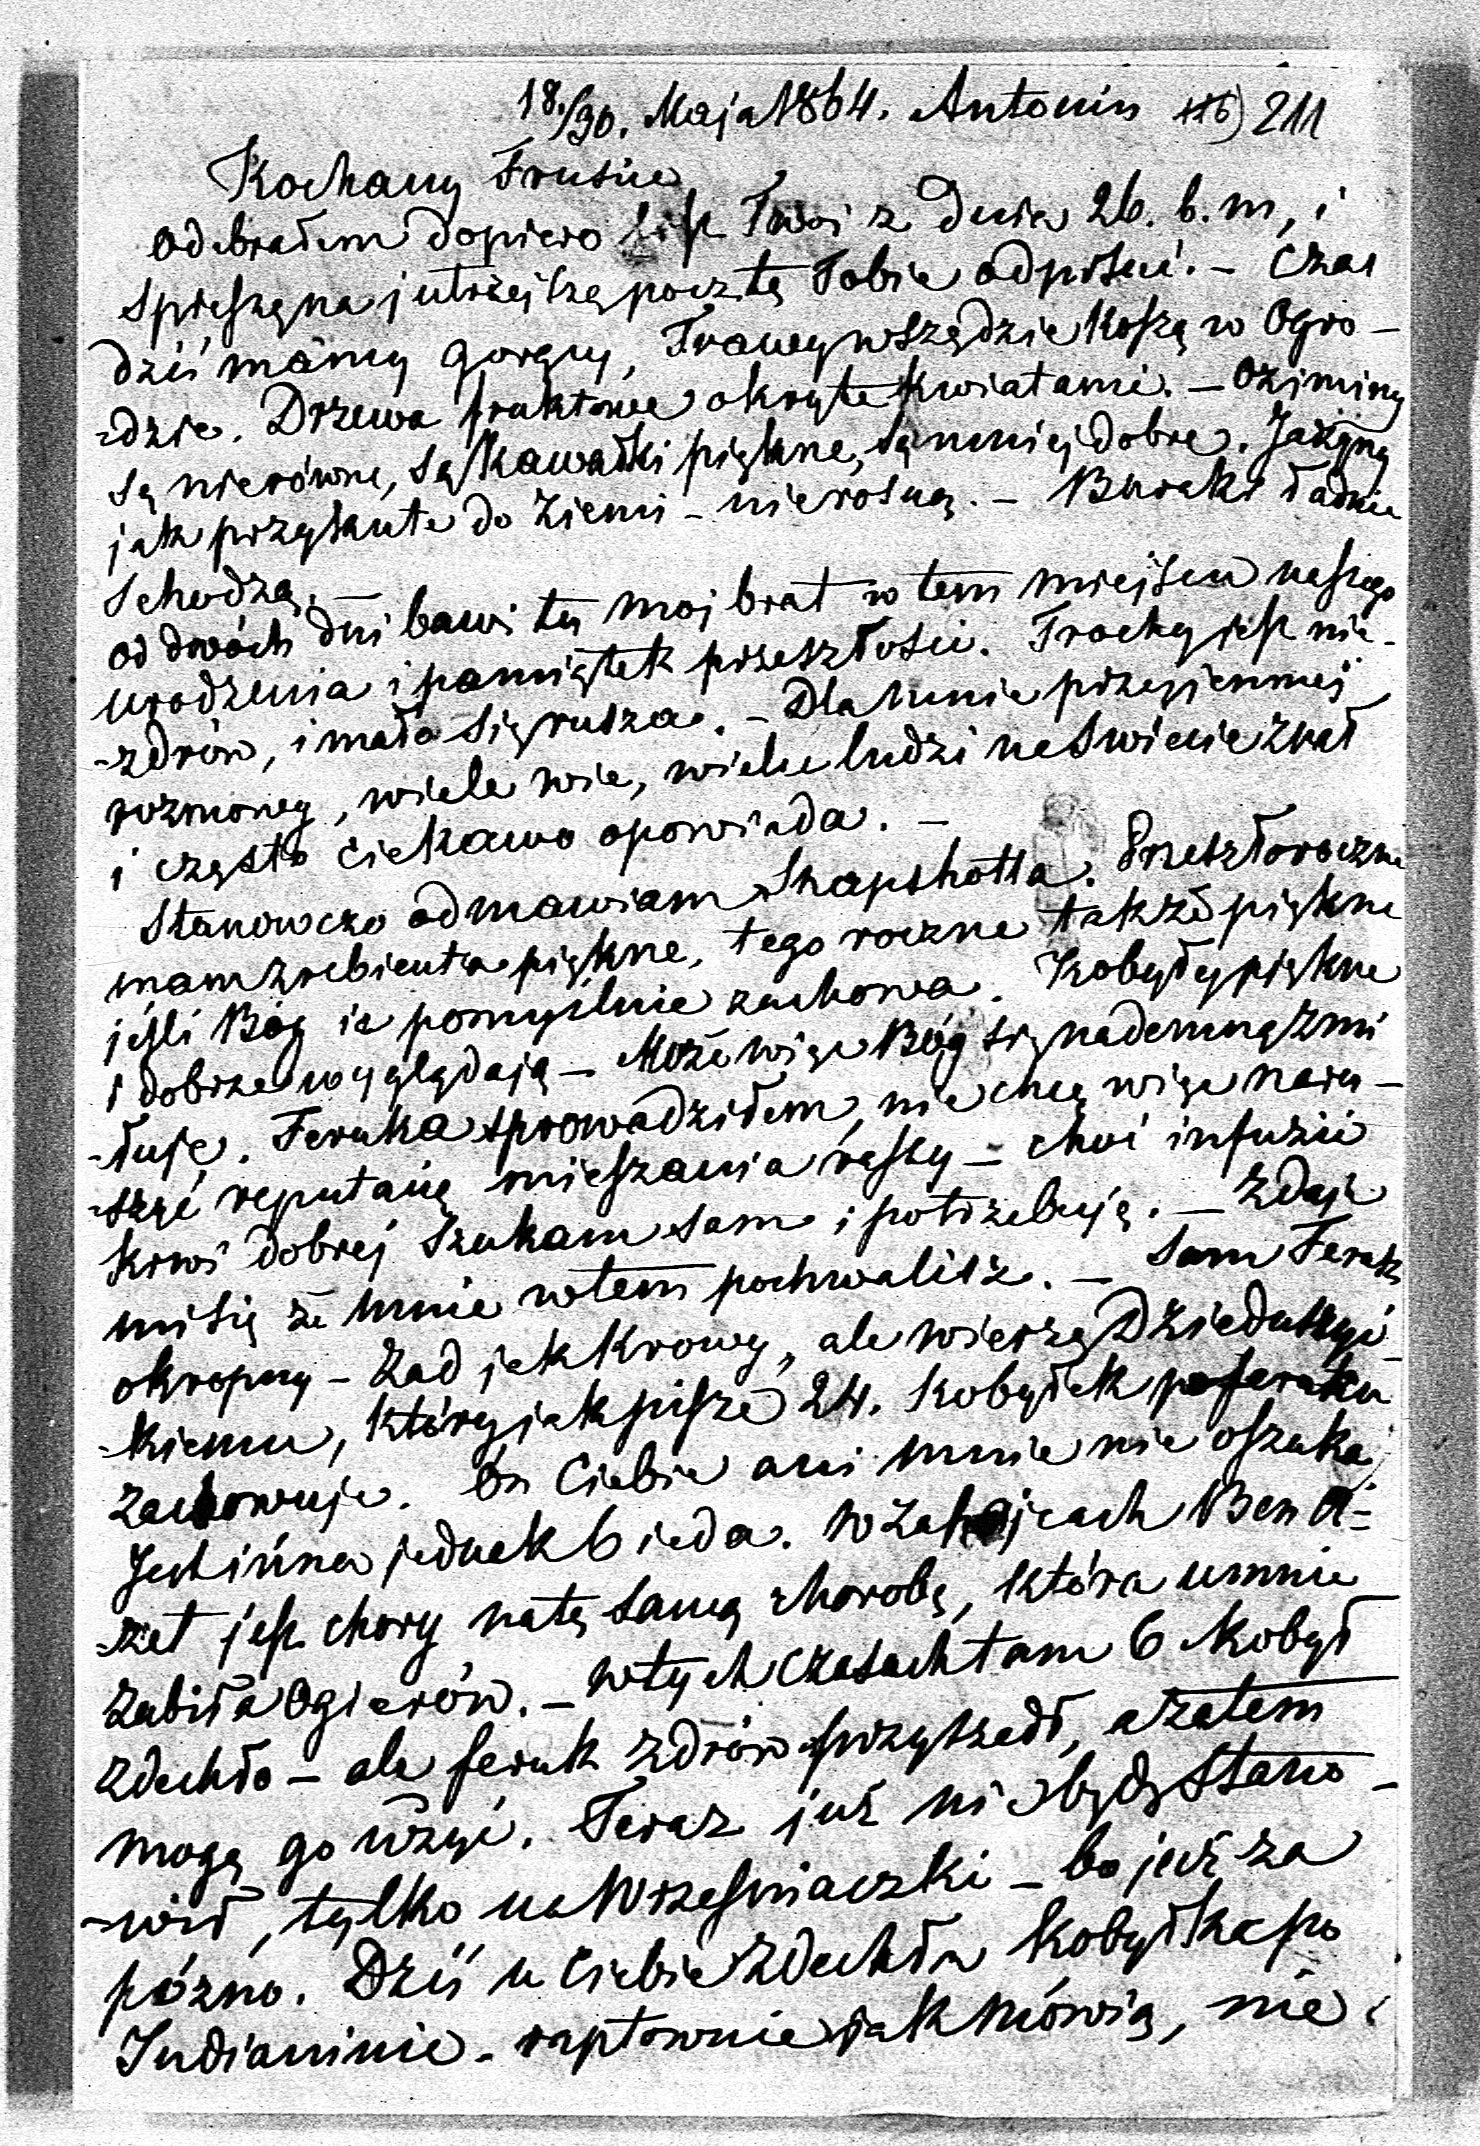 18./30. Maja 1864. Antonin 116) 211
Kochany Frusiu
odebrałem dopiero list Twoi z dnia 26. b. m, i
spieszę na jutrzejszą pocztę Tobie odpisać. – Czas
dziś mamy gorący, Trawy wszędzie koszą w Ogro-
-dzie. Drzewa fruktowe okryte kwiatami. – Oziminy
są nierówne, są kawałki piękne, są mniej dobre. Jażyny
jak przykute do ziemi – nie rosną. – Buraki ładnie
schodzą. –
od dwóch dni bawi tu moj brat w tem miejscu naszego
urodzenia i pamiątek przeszłosci. Trochę jest nie-
-zdrów, i mało się rusza. – Dla mnie przyjemnej
rozmowy, wiele wie, wiele ludzi na swiecie znał
i często ciekawo opowiada. –
Stanowczo odmawiam Snapshotta. Przeszłoroczne
mam zrebienta piękne, tego roczne także piękne
jeśli Bóg ie pomyślnie zachowa. Kobyły piękne
i dobrze wyglądają – Może więc Bóg się nademną zmi
-łuje. Feruka sprowadziłem, nie chcę więc naru-
-szyć reputacyę mieszania rassy – choć infuzii
krwi dobrej szukam sam i potrzebuję. – Zdaje
mi się że mnie wtem pochwalisz. – Sam Feruk
okropny – Zad jak krowy, ale wierzę Dzieduszyc-
-kiemu, który jak pisze 24. kobyłek po feruku
zachowuje. On Ciebie ani mnie nie oszuka
Jest inna jednak bieda. W Zahajcach Ben A-
-zet jest chory na tę samą chorobę, która u mnie
zabiła Ogierów. – W tych czasach tam 6 kobył
zdechło – ale feruk zdrów przyszedł, a zatem
mogę go użyć. Teraz już nie będę stano-
-wił, tylko na Wrześniaczki – bo już za
pózno. Dziś u Ciebie zdechła kobyłka po
Indianinie – raptownie jak mówią, nie